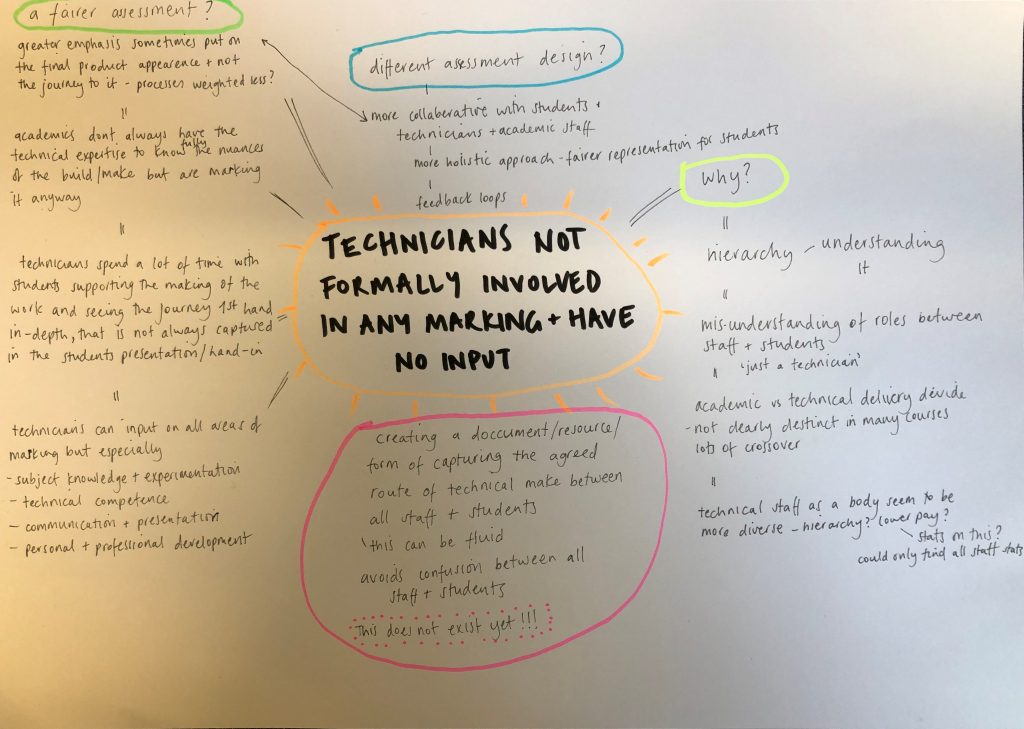 a fairer assessment?
greater emphasis sometimes put on
the final product appearence + not
the journey to it - processes weighted less?
academics dont always have the
technical expertise to know fully the nuances
of the build/make but are marking
it anyway
technicians spend a lot of time with
students supporting the making of the
work and seeing the journey 1st hand
in-depth, that is not always captured
in the students presentation/hand-in
technicians can input on all areas of
marking but especially
- subject knowledge + experimentation
- technical competence
- communication + presentation
- personal + professional development
different assessment design?
more collaborative with students +
technicians + academic staff
more holistic approach - fairer representation for students
feedback loops
TECHNICIANS NOT
FORMALLY INVOLVED
IN ANY MARKING + HAVE
NO INPUT
creating a doccument/resource/
form of capturing the agreed
route of technical make between
all staff + students
this can be fluid
avoids confusion between all
staff + students
This does not exist yet!!!
why?
hierarchy - understanding
it
mis-understanding of roles between
staff + students
'just a technician'
academic vs technical delivery divide
- not clearly distinct in many courses
lots of crossover
technical staff as a body seem to be
more diverse - hierarchy? lower pay?
stats on this?
could only find all staff stats